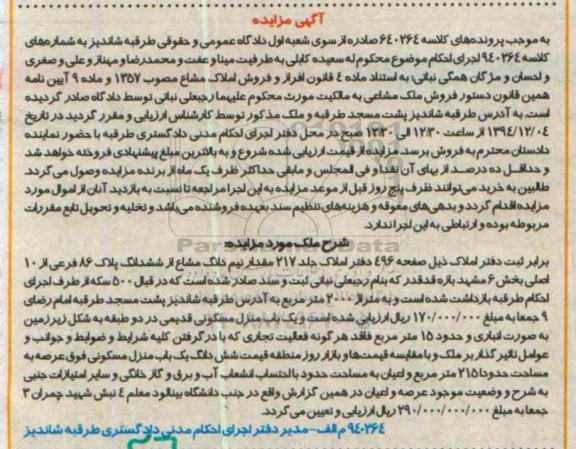 آگهی مزایده
به موجب پرونده‌های کلاسه ۶۴۰۲۶۴ صادره از سوی شعبه اول دادگاه عمومی و حقوقی طرقبه شاندیز به شماره‌های
کلاسه ۹۴۰۲۶۴ اجرای احکام موضوع محکوم له سعیده کابلی به طرفیت مینا و عفت و محمدرضا و مهناز و علی و صغری
و احسان و مژگان همگی نباتی، به استناد ماده ۴ قانون افراز و فروش املاک مشاع مصوب ۱۳۵۷ و ماده ۹ آیین نامه
همین قانون دستور فروش ملک مشاعی به مالکیت مورث محکوم علیهما رجبعلی نباتی توسط دادگاه صادر گردیده
است. به آدرس طرقبه شاندیز پشت مسجد طرقبه و ملک مذکور توسط کارشناس ارزیابی و مقرر گردید در تاریخ
۱۳۹۴/۱۲/۰۴ از ساعت ۱۲:۳۰ الی ۱۳:۳۰ صبح در محل دفتر اجرای احکام مدنی دادگستری طرقبه با حضور نماینده
دادستان محترم به فروش برسد. مزایده از قیمت ارزیابی شده شروع و به بالاترین مبلغ پیشنهادی فروخته خواهد شد
و حداقل ده درصد از بهای آن نقدا و فی المجلس و مابقی حداکثر ظرف یک ماه از برنده مزایده وصول می گردد.
طالبین به خرید می‌توانند ظرف پنج روز قبل از موعد مزایده به این اجرا مراجعه تا نسبت به بازدید آنان از اموال مورد
مزایده اقدام گردد و بدهی‌های معوقه و هزینه‌های تنظیم سند بعهده فروشنده می‌باشد و تخلیه و تحویل تابع مقررات
مربوطه بوده و ارتباطی به این اجرا ندارد.
شرح ملک مورد مزایده:
برابر ثبت دفتر املاک ذیل صفحه ۴۹۶ دفتر املاک جلد ۲۱۷ مقدار نیم دانگ مشاع از ششدانگ پلاک ۸۶ فرعی از ۱۰
اصلی بخش ۶ مشهد بازه قدقدر که بنام رجبعلی نباتی ثبت و سند صادر شده است که در قبال ۵۰۰ سکه از طرف اجرای
احکام طرقبه بازداشت شده است و به متراژ ۲۰۰۰ متر مربع به آدرس طرقبه شاندیز پشت مسجد طرقبه امام رضای
۹ جمعا به مبلغ ۱۷۰/۰۰۰/۰۰۰ ریال ارزیابی شده است و یک باب منزل مسکونی قدیمی در دو طبقه به شکل زیرزمین
به صورت انباری و حدود ۱۵ متر مربع فاقد هر گونه فعالیت تجاری که با در گرفتن کلیه شرایط و ضوابط و جوانب و
عوامل تاثیر گذار بر ملک و با مقایسه قیمت‌ها و بازار روز منطقه قیمت شش دانگ یک باب منزل مسکونی فوق عرصه به
مساحت حدودا ۲۱۵ متر مربع و اعیان به مساحت حدود با احتساب انشعاب آب و برق و گاز خانگی و سایر امتیازات جنبی
به شرح و وضعیت موجود عرصه و اعیان در همین گزارش واقع در جنب دانشگاه بینالود معلم ۴ نبش شهید چمران ۳
جمعا به مبلغ ۲۹۰/۰۰۰/۰۰۰/۰۰۰ ریال ارزیابی و تعیین می گردد.
۹۴۰۲۶۴ م الف- مدیر دفتر اجرای احکام مدنی دادگستری طرقبه شاندیز